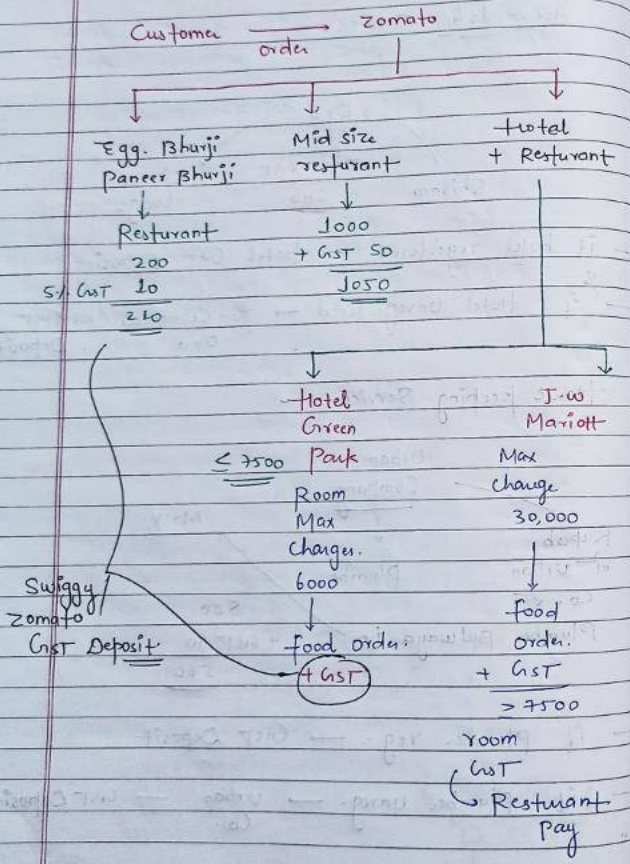 Customer → Zomato
order
Egg. Bhurji
Paneer Bhurji
Resturant
200
5% GST 10
210
Mid size
resturant
1000
+ GST 50
1050
Hotel
+ Resturant
Hotel
Green
Park
≤ 7500
Room
Max
Charges.
6000
food order.
+ GST
J.W
Mariott
Max
Charge
30,000
food
order.
+ GST
≥ 7500
room
GST
Resturant
Pay
Swiggy/
Zomato
GST Deposit